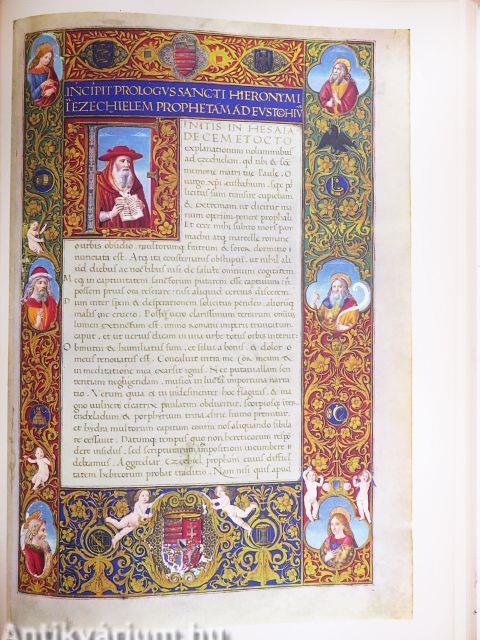 INCIPIT PROLOGVS SANCTI HIERONYMI
I EZECHIELEM PROPHETAM AD EVSTOHIV̄
INITIS IN HESAIA
DECEM ET OCTO
explanationum voluminibus
ad ezechielem
memorie matri tue Paule
& extremam ut dicitur ma
num operi
Et ecce mihi subito mors pam
machii atq; marcelle romane
urbis obsidio multorumq; fratrum & soror dormitio
nunciata est. Atq; ita consternatus obstupui, ut nihil ali
ud diebus ac noctibus nisi de salute omnium cogitarem
captivitate sanctorum putarem esse captivum
possem prius ora reserare nisi aliquid certius discerem
Dum inter spem & desperationem solicitus pendeo, aliorumq;
malis me crucio. Postq; vero clarissimum terrarum omniu
lumen extinctum est, immo romani imperii truncatum
caput, et ut verius dicam in una urbe totus orbis interiit
Obmutui & humiliatus sum, et silui a bonis, & dolor
meus renovatus est. Concaluit intra me cor meum &
in meditatione mea exarsit ignis. Nec putavi illam sen
tentiam negligendam, musica in luctu importuna narra
tio. Verum quia et tu indesinenter hoc flagitas, & ma
gno vulneri cicatrix paulatim obducitur, scorpiusq; inter
enceladum & porphyrium trinacrie humo premitur,
et hydra multorum capitum contra nos aliquando sibila
re cessavit. Datumq; tempus quo non hereticorum respon
dere insidiis, sed scripturarum expositioni incumbere
debeamus. Aggrediar Ezechiel propham cuius difficul
tatem hebreorum probat traditio. Nam nisi quis apud
Antikvárium.hu